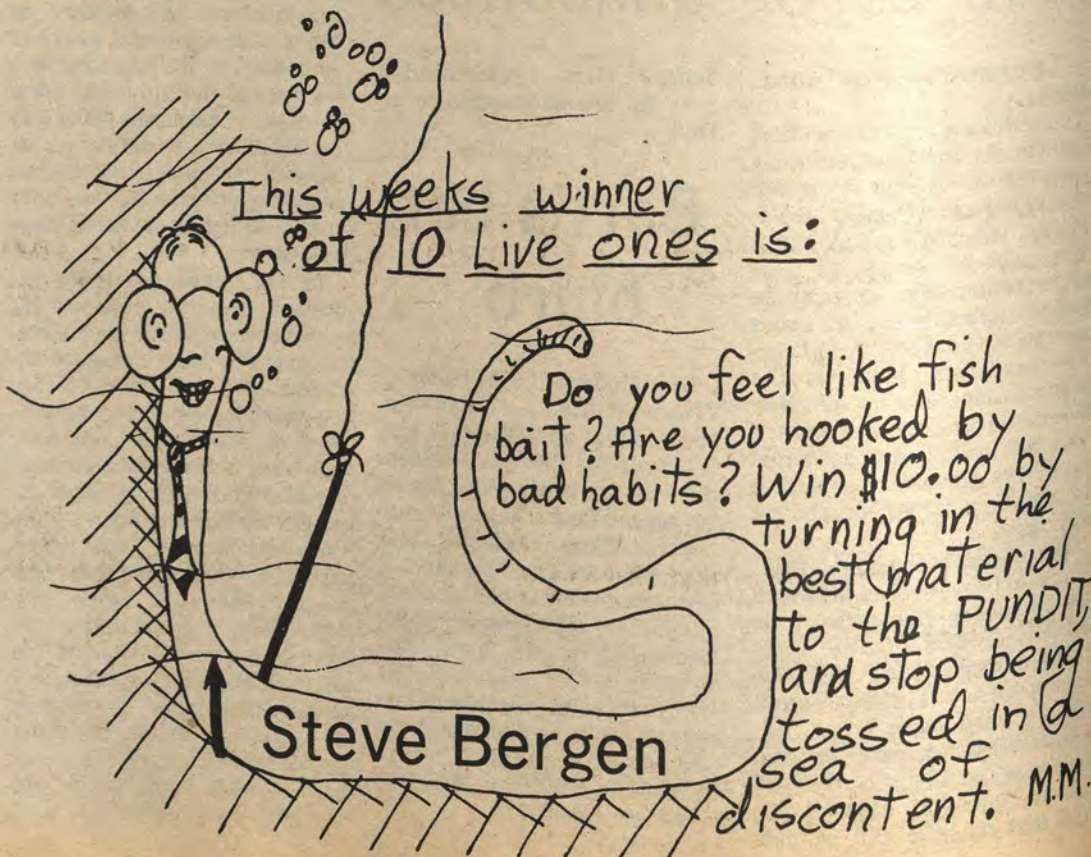 This weeks winner
of 10 Live ones is:
Do you feel like fish
bait? Are you hooked by
bad habits? Win $10.00 by
turning in the
best material
to the PUNDIT,
and stop being
tossed in a
sea of
discontent. M.M.
Steve Bergen